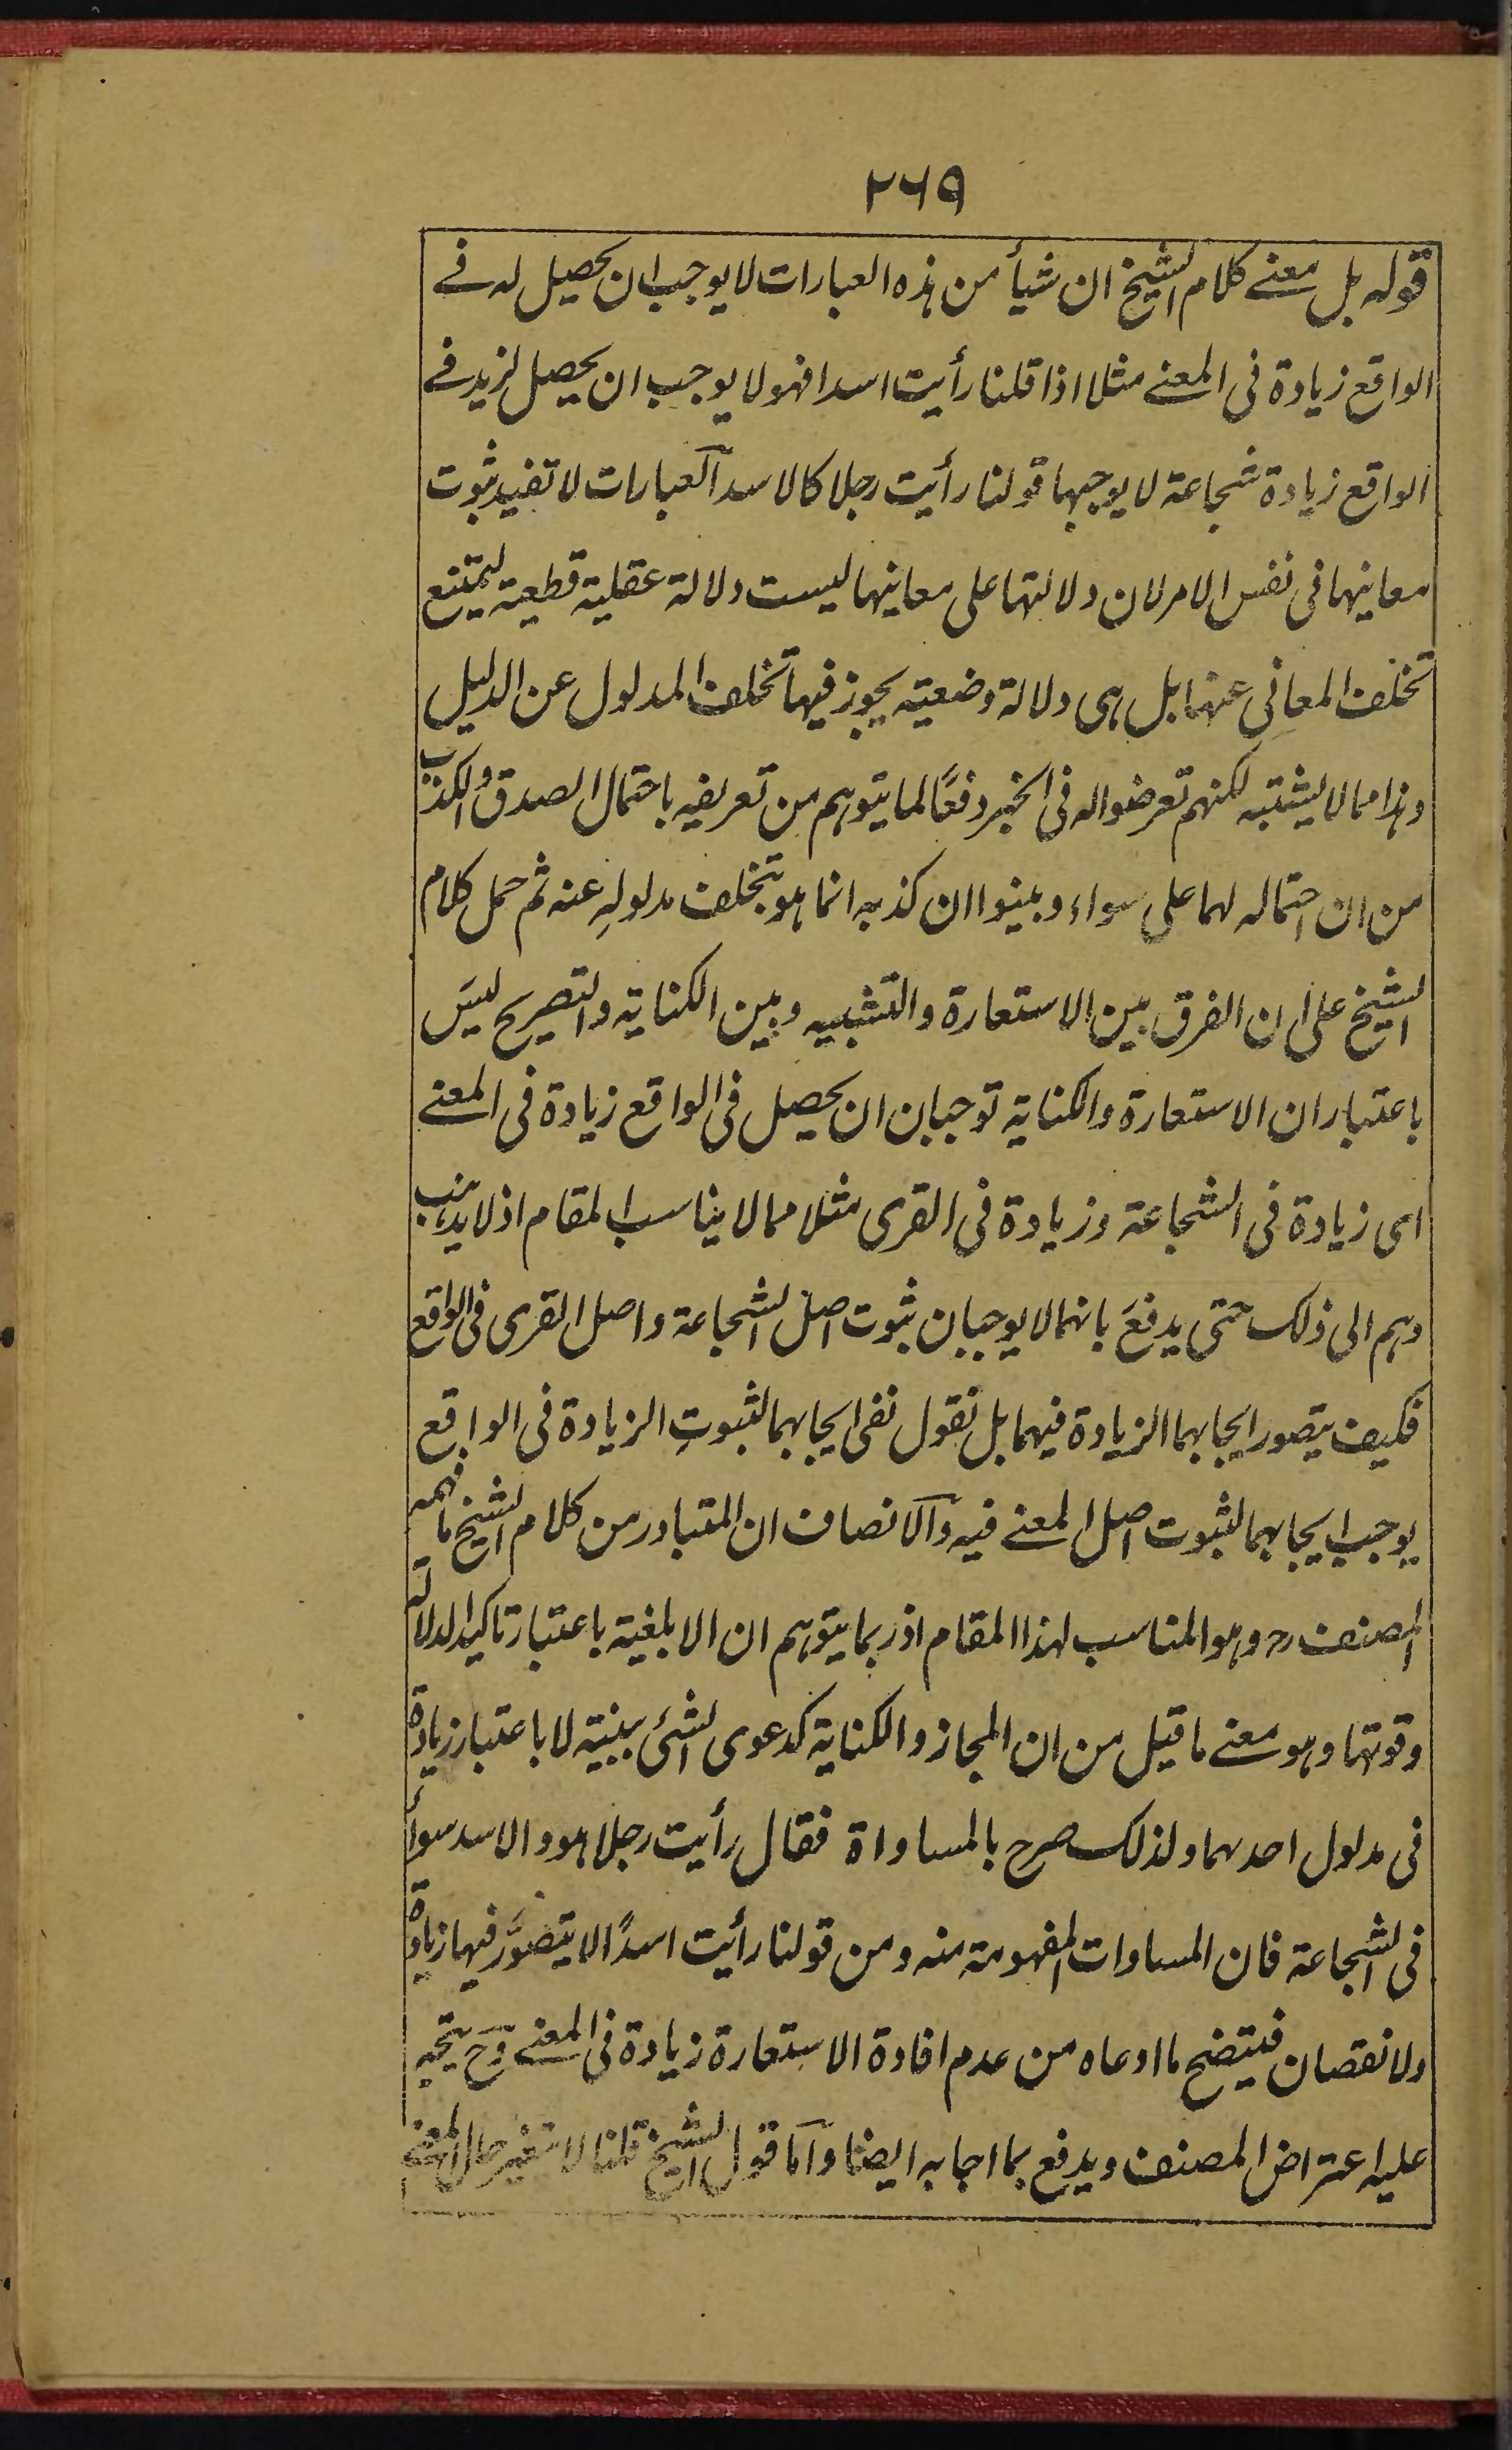 ۲۶۹
قوله بل معنے كلام الشيخ ان شيأ من هذه العبارات لا يوجب ان يحصل له فے
الواقع زيادة فى المعنے مثلا اذا قلنا رأيت اسدا فهو لا يوجب ان يحصل لزيد فے
الواقع زيادة شجاعة لا يوجبها قولنا رأيت رجلا كالاسد آلعبارات لا تفيد ثبوت
معانيها فى نفس الامر لان دلالتها على معانيها ليست دلالة عقلية قطعية ليمتنع
تخلف المعانى عنها بل هى دلالة وضعية يجوز فيها تخلف المدلول عن الدليل
وهذا مما لا يشتبه لكنهم تعرضوا له فى الخبر دفعًا لما يتوهم من تعريفه باحتمال الصدق والكذب
من ان احتماله لهما على سواء وبينوا ان كذبه انما هو بتخلف مدلولِه عنه ثم حمل كلام
الشيخ على ان الفرق بين الاستعارة والتشبيه وبين الكناية والتصريح ليسَ
باعتبار ان الاستعارة والكناية توجبان ان يحصل فى الواقع زيادة فى المعنے
اى زيادة فى الشجاعة وزيادة فى القرى مثلا مما لا يناسب المقام اذ لا يذهب
وهم الى ذلك حتى يدفعَ بانهما لا يوجبان ثبوت اصل الشجاعة واصل القرى فى الواقع
فكيف يتصور ايجابهما الزيادة فيهما بل نقول نفى ايجابهما لثبوتِ الزيادة فى الواقع
يوجب ايجابهما لثبوت اصل المعنے فيه وآلانصاف ان المتبادر من كلام الشيخ ما فهمه
المصنف رح وهو المناسب لهذا المقام اذ ربما يتوهم ان الابلغية باعتبار تاكيد الدلالة
وقوتها وهو معنے ما قيل من ان المجاز والكناية كدعوى الشئ ببينة لا باعتبار زيادة
فى مدلول احدهما ولذلك صرح بالمساواة فقال رأيت رجلا هو والاسد سوأ
فى الشجاعة فان المساوات المفهومة منه ومن قولنا رأيت اسدًا لا يتصوَّر فيها زيادة
ولا نقصان فيتضح ما ادعاه من عدم افادة الاستعارة زيادة فى المعنے وحَ يتجه
عليه اعتراض المصنف ويدفع بما اجاب به ايضا وآما قول الشيخ قلنا لا يتغير حال المعنے